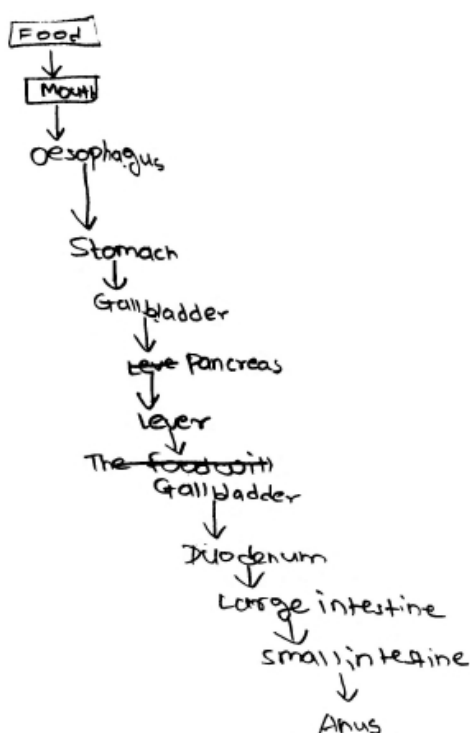 Food
Mouth
Oesophagus
Stomach
Gallbladder
Leve Pancreas
Lever
The food with
Gallbladder
Duodenum
Large intestine
small intestine
Anus